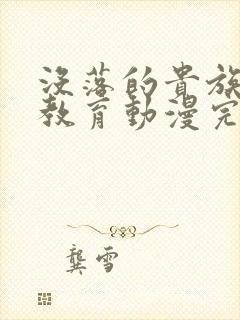 没落的贵族
教育動漫完
龔雪